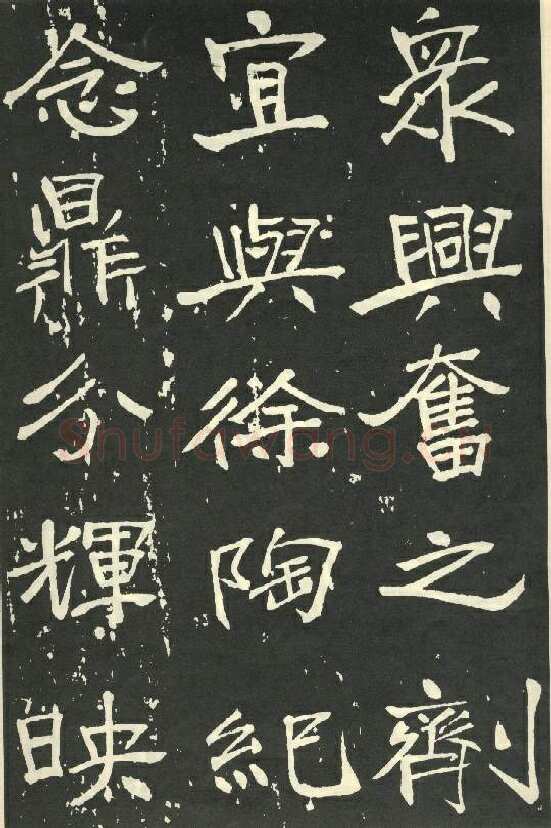 衆興奮之劑
宜與徐陶紀
念鼎分輝映
Shufawang.cn